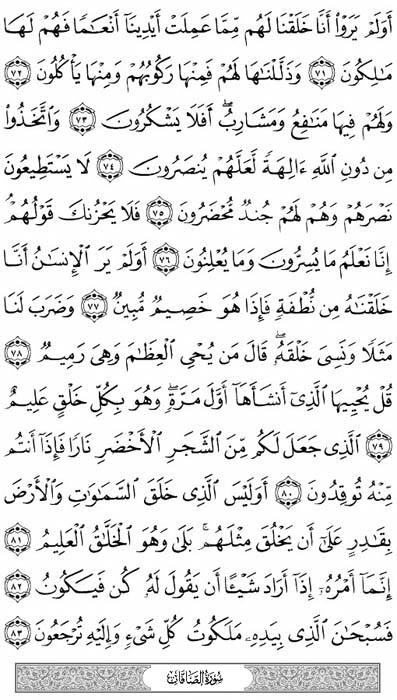 أَوَلَمْ يَرَوْا۟ أَنَّا خَلَقْنَا لَهُم مِّمَّا عَمِلَتْ أَيْدِينَآ أَنْعَـٰمًا فَهُمْ لَهَا
مَـٰلِكُونَ ۝٧١ وَذَلَّلْنَـٰهَا لَهُمْ فَمِنْهَا رَكُوبُهُمْ وَمِنْهَا يَأْكُلُونَ ۝٧٢
وَلَهُمْ فِيهَا مَنَـٰفِعُ وَمَشَارِبُ ۖ أَفَلَا يَشْكُرُونَ ۝٧٣ وَٱتَّخَذُوا۟
مِن دُونِ ٱللَّهِ ءَالِهَةً لَّعَلَّهُمْ يُنصَرُونَ ۝٧٤ لَا يَسْتَطِيعُونَ
نَصْرَهُمْ وَهُمْ لَهُمْ جُندٌ مُّحْضَرُونَ ۝٧٥ فَلَا يَحْزُنكَ قَوْلُهُمْ ۘ
إِنَّا نَعْلَمُ مَا يُسِرُّونَ وَمَا يُعْلِنُونَ ۝٧٦ أَوَلَمْ يَرَ ٱلْإِنسَـٰنُ أَنَّا
خَلَقْنَـٰهُ مِن نُّطْفَةٍ فَإِذَا هُوَ خَصِيمٌ مُّبِينٌ ۝٧٧ وَضَرَبَ لَنَا
مَثَلًا وَنَسِىَ خَلْقَهُۥ ۖ قَالَ مَن يُحْىِ ٱلْعِظَـٰمَ وَهِىَ رَمِيمٌ ۝٧٨
قُلْ يُحْيِيهَا ٱلَّذِىٓ أَنشَأَهَآ أَوَّلَ مَرَّةٍ ۖ وَهُوَ بِكُلِّ خَلْقٍ عَلِيمٌ
۝٧٩ ٱلَّذِى جَعَلَ لَكُم مِّنَ ٱلشَّجَرِ ٱلْأَخْضَرِ نَارًا فَإِذَآ أَنتُم
مِّنْهُ تُوقِدُونَ ۝٨٠ أَوَلَيْسَ ٱلَّذِى خَلَقَ ٱلسَّمَـٰوَٰتِ وَٱلْأَرْضَ
بِقَـٰدِرٍ عَلَىٰٓ أَن يَخْلُقَ مِثْلَهُم ۚ بَلَىٰ وَهُوَ ٱلْخَلَّـٰقُ ٱلْعَلِيمُ ۝٨١
إِنَّمَآ أَمْرُهُۥٓ إِذَآ أَرَادَ شَيْـًٔا أَن يَقُولَ لَهُۥ كُن فَيَكُونُ ۝٨٢
فَسُبْحَـٰنَ ٱلَّذِى بِيَدِهِۦ مَلَكُوتُ كُلِّ شَىْءٍ وَإِلَيْهِ تُرْجَعُونَ ۝٨٣
سُورَةُ الصَّافَّاتِ